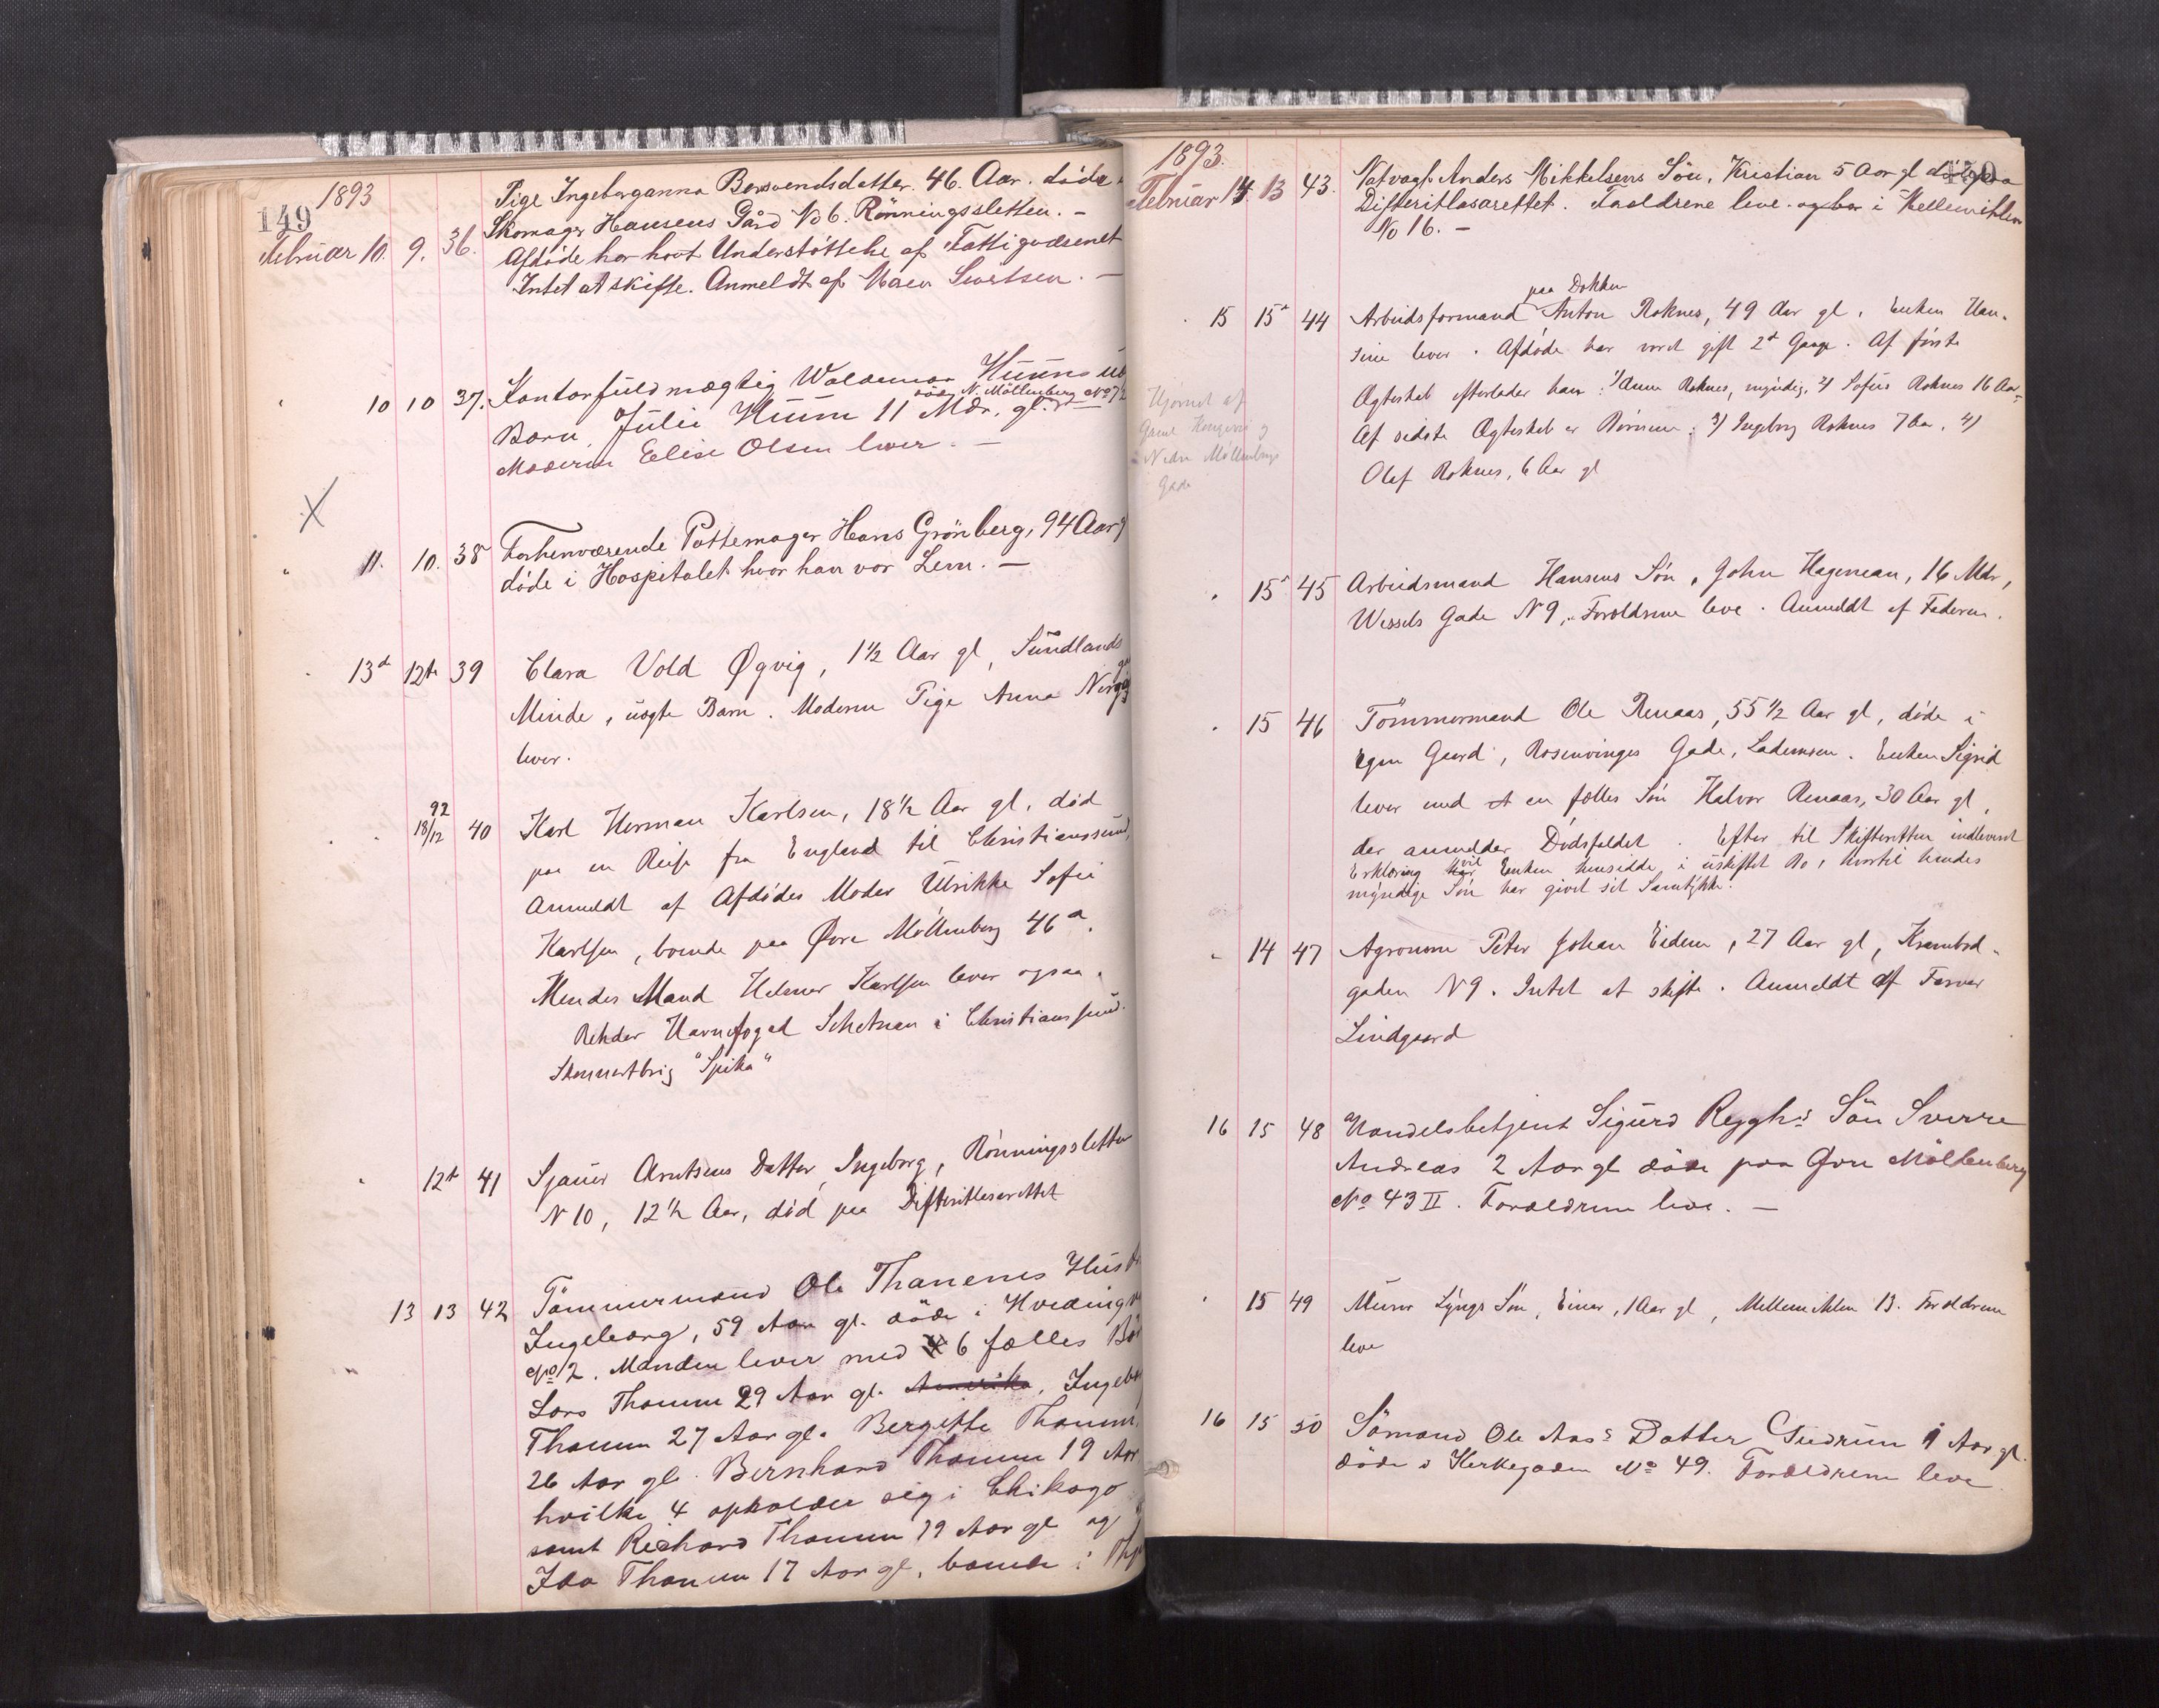 149 1893
Februar 10. 9. 36. Pige Ingeborganna Bersvendsdatter. 46. Aar. døde
Skomager Hansens Gård No 6. Rönningssletten. -
Afdøde har havt Understöttelse af Fattigvæsenet
Intet at skifte. Anmeldt af Maren Sivertsen. -
10 10 37. Kontorfuldmægtig Waldemar Huuns
død N. Möllenberg No 7
Barn, Julie Huun 11 Mdr. gl.
Moderen Elise Olsen lever. -
X
" 11. 10. 38 Forhenværende Pottemager Hans Grönberg, 94 Aar
døde i Hospitalet hvor han var Lem. -
13d 12te 39 Clara Vold Øgvig, 1½ Aar gl, Sundlands
Minde, uægte Barn. Moderen Pige Anna
lever.
92
18/12 40 Karl Herman Karlsen, 18½ Aar gl, død
paa en Reise fra England til Christianssund,
Anmeldt af Afdødes Moder Ulrikke Sofie
Karlsen, boende paa Øvre Möllenberg 46a.
Hendes Mand Helmer Karlsen lever ogsaa.
Reheder Havnefoged Schetnan i Christianssund.
Skonnertbrig "Spika"
12te 41 Sjauer Arntsens Datter, Ingeborg, Rönningssletten
N 10, 12½ Aar, död paa Difteritlasarettet
13 13 42 Tömmermand Ole Thanems Hustru
Ingeborg, 59 Aar gl. döde i
No 2. Manden lever med 6 fælles
Lars Thanem 29 Aar gl. Amerika, Ingeb
Thanem 27 Aar gl. Bergitte Thanem,
26 Aar gl. Bernhard Thanem 19 Aar
hvilke 4 opholder sig i Chikago
samt Richard Thanem 19 Aar gl og
Ida Thanem 17 Aar gl, boende i
1893.
Februar 14 13 43. Natvagt Anders Mikkelsens Søn, Kristian 5 Aar gl døde paa
Difteritlasarettet. Forældrene leve og bor i Mellemittlen
No 16. -
paa Dokken
15 15d 44 Arbeidsformand Anton Roknes, 49 Aar gl. Enken Han-
sine lever. Afdøde har været gift 2d Gange. Af første
Hjørnet af
Gaml Kongevei og
Nedre Möllenbergs
Gade
Ægteskab efterlader han: 1) Anna Roknes, myndig, 2) Sofus Roknes 16 Aar,
Af sidste Ægteskab er Børnene: 3) Ingeborg Roknes 7 Aar, 4)
Olaf Roknes, 6 Aar gl
" 15d 45 Arbeidsmand Hansens Søn, John Hageman, 16 Mdr,
Wessels Gade N 9, Forældrene leve. Anmeldt af Faderen.
" 15 46 Tömmermand Ole Renaas, 55½ Aar gl, døde i
egen Gaard, Rosenvinges Gade, Lademoen. Enken Sigrid
lever med en fælles Søn Halvor Renaas, 30 Aar gl,
der anmelder Dödsfaldet. Efter til Skifteretten indleveret
Erklæring vil Enken hensidde i uskiftet Bo, hvortil hendes
myndige Søn har givet sit Samtykke.
" 14 47 Agronom Peter Johan Eidem, 27 Aar gl, Krambod-
gaden N 9. Intet at skifte. Anmeldt af Farver
Lindgaard
16 15 48 Handelsbetjent Sigurd Ryghs Sön Sverre
Andreas 2 Aar gl döde paa Øvre Möllenberg
No 43 II. Forældrene leve. -
" 15 49 Murer Lyngs Søn, Einar, 1 Aar gl, Mellemittlen 13. Forældrene
leve
16 15 50 Sömand Ole Aas's Datter Gudrun 1 Aar gl.
döde i Kirkegaden No 49. Forældrene leve